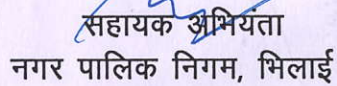 सहायक अभियंता
नगर पालिक निगम, भिलाई